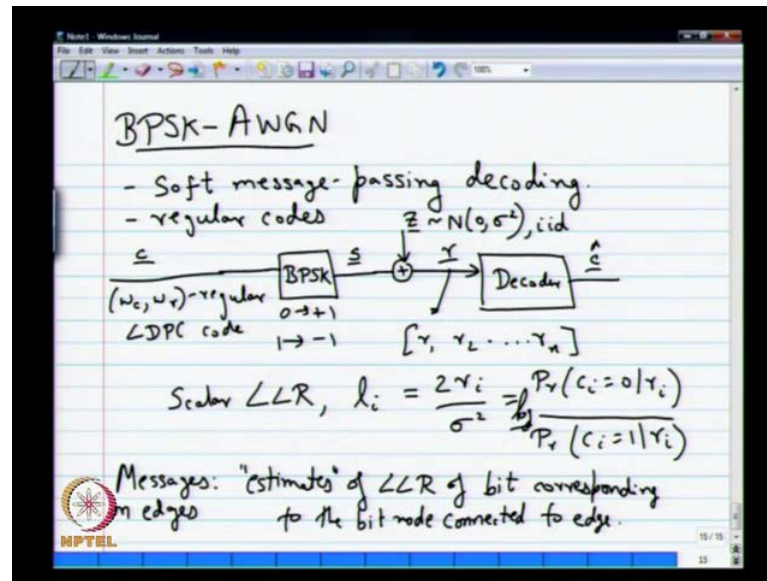 Note1 - Windows Journal
File Edit View Insert Actions Tools Help
100%
BPSK-AWGN
- Soft message-passing decoding.
- regular codes
z ~ N(0, σ²), iid
c
BPSK
s
+
r
Decoder
ĉ
(wc, wr)-regular
LDPC code
0→+1
1→-1
[r1 r2 .... rn]
Scalar LLR, li = 2ri/σ² = log Pr(ci=0|ri)/Pr(ci=1|ri)
Messages: "estimates" of LLR of bit corresponding
n edges to the bit node connected to edge.
NPTEL
15/15
15